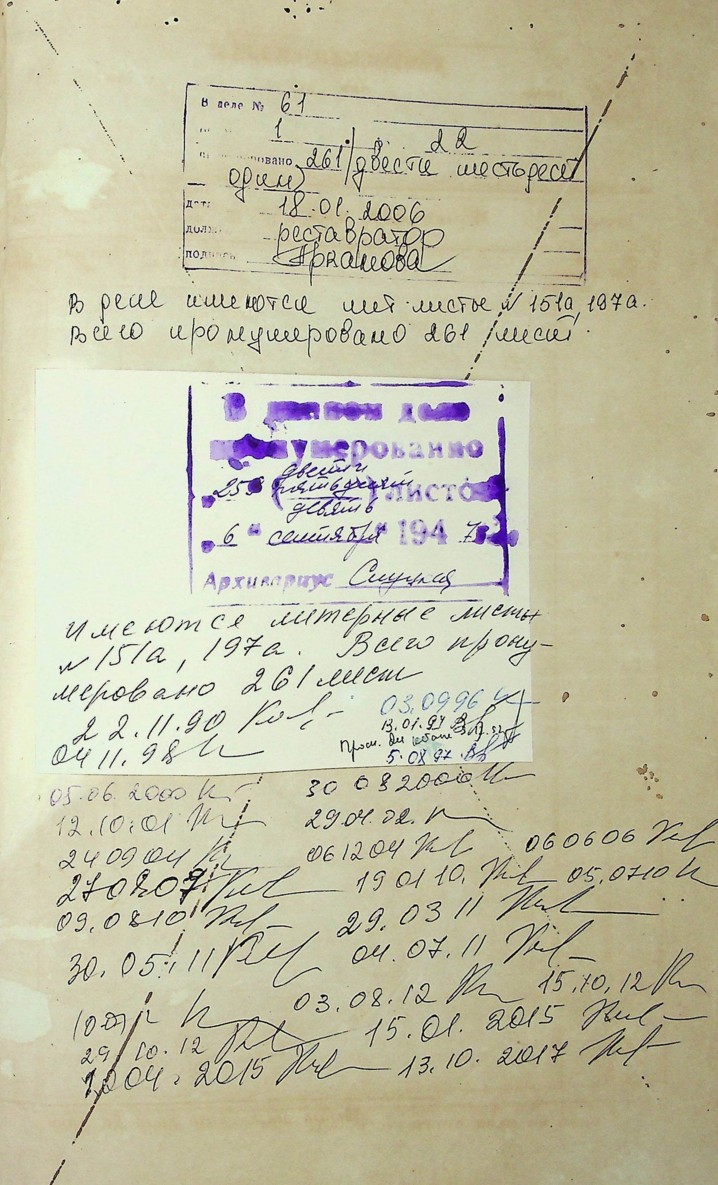 В деле № 61
1 22
261 (двести шестьдесят
один)
дата 18.01.2006
реставратор
подпись
В деле имеются лит. листы № 151а, 197а.
Всего пронумеровано 261 лист.
В данном деле
пронумерованно
259 (двести пятьдесят девять) листов
6 " сентября " 194 7
Архивариус
Имеются литерные листы
№ 151а, 197а. Всего прону-
меровано 261 лист
22.11.90
03.0996
13.01.97
04 11.98
5.08 97
05.06.2000 30 08 2000
12.10.01 29.04.02.
24 09 04 06 12 04 06 06 06
27 08 07 19 01 10. 05.07 10
09.08 10 29.03 11
30.05.11 04.07.11
03.08.12 15.10.12
29.10.12 15.01.2015
04.2015 13.10.2017